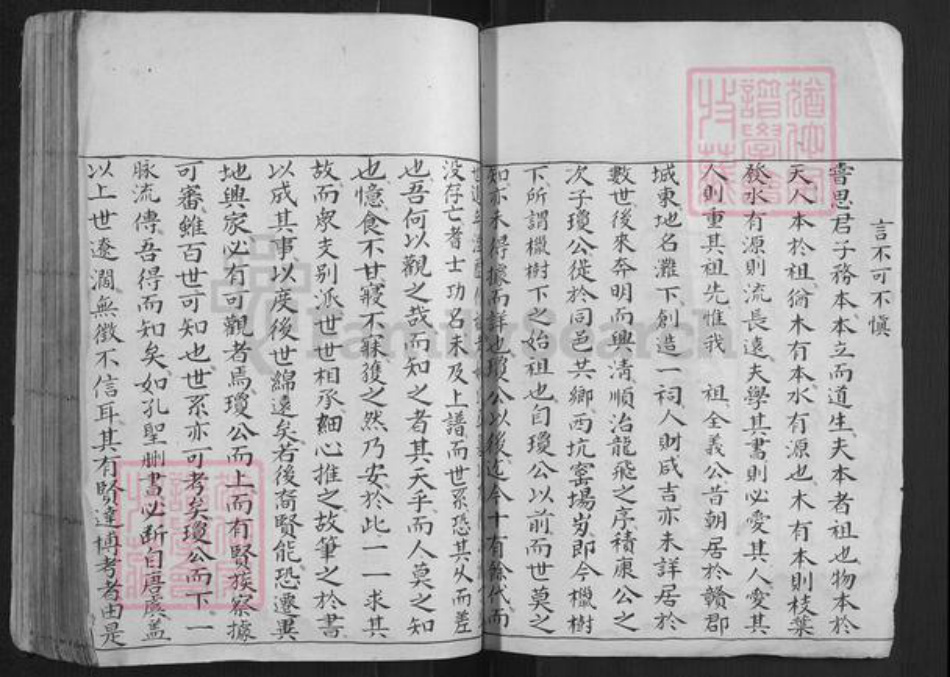 言不可不慎
嘗思君子務本本立而道生夫本者祖也物本於
天人本於祖猶木有本水有源也木有本則枝葉
發水有源則流長遠夫學其書則必愛其人愛其
人則重其祖先惟我 祖全義公昔朝居於贛郡
城東地名灘下創造一祠人財咸吉亦未詳居於
數世後來奔明而興清順治龍飛之序積康公之
次子瓊公徙於同邑共鄉西坑窑場岃即今欖樹
下所謂欖樹下之始祖也自瓊公以前而世莫之
知亦未得據而詳也瓊公以後迄今十有餘代而
没存亡者士功名未及上譜而世系恐其从而差
也吾何以觀之哉而知之者其天乎而人莫之知
也憶食不甘寢不寐獲之然乃安於此一一求其
故而衆支别派世世相承細心推之故筆之於書
以成其事以度後世綿遠矣若後裔賢能恐遷異
地與家必有可觀者焉瓊公而上而有賢族察據
可審雖百世可知也世系亦可考矣瓊公而下一
脉流傳吾得而知矣如孔聖刪書必断自唐虞盖
以上世遼濶無徵不信耳其有賢達博考者由是
FamilySearch